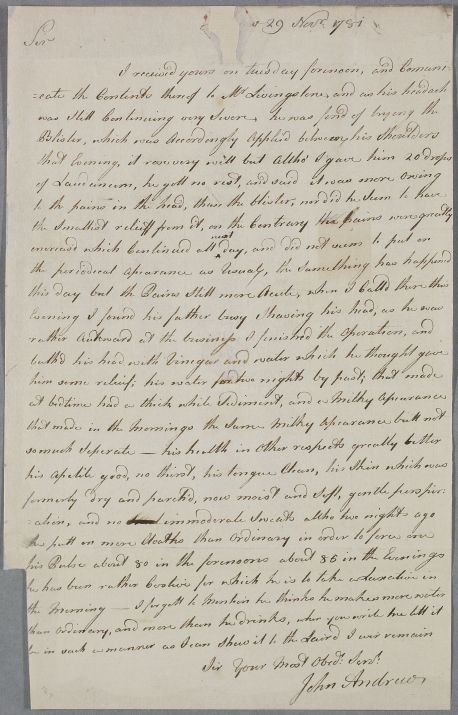 29 Novr. 1781
Sir
I received yours on tuesday forenoon, and Comuni=
=cate the Contents thereof to Mr. Livingstone, and as his headach
was still Continuing very Severe, he was fond of trying the
Blister, which was Accordingly Applied between his Shoulders
that Evening, it rose very well but altho' I gave him 20 drops
of Laudanum, he gott no rest, and said it was more owing
to the pains in the head, than the blister, nor did he seem to have
the smallest relieff from it, on the Contrary the pains were greatly
increased which Continued all next day, and did not seem to put on
the periodical apearance as usualy, the same thing has happened
this day but the Pains still more Acute, when I call'd there this
Evening I found his father busy Shaving his head, as he was
rather Aukward at the business I finished the Operation, and
bath'd his head with Vinegar and water which he thought gave
him some relief; his water for two nights by past, that made
at bedtime had a thick white Sediment, and a Milky Apearance
that made in the Mornings the same Milky Apearance butt not
so much Seperate — his health in Other respects greatly better
his apetite good, no thirst, his tongue Clean, his skin which was
formerly dry and parch'd, now moist and soft, gentle perspir=
=ation, and no immoderate Sweats altho two nights ago
he putt on more Cloaths than Ordinary in order to force one
his Pulse about 80 in the forenoons about 85 in the Evenings
he has been rather Costive for which he is to take a Laxative in
the Morning — I forgott to Mention he thinks he makes more water
than Ordinary, and more than he drinks, when you write me lett it
be in such a manner as I can shew it to the Laird I ever remain
Sir Your Most Obedt. Servt.
John Andrew